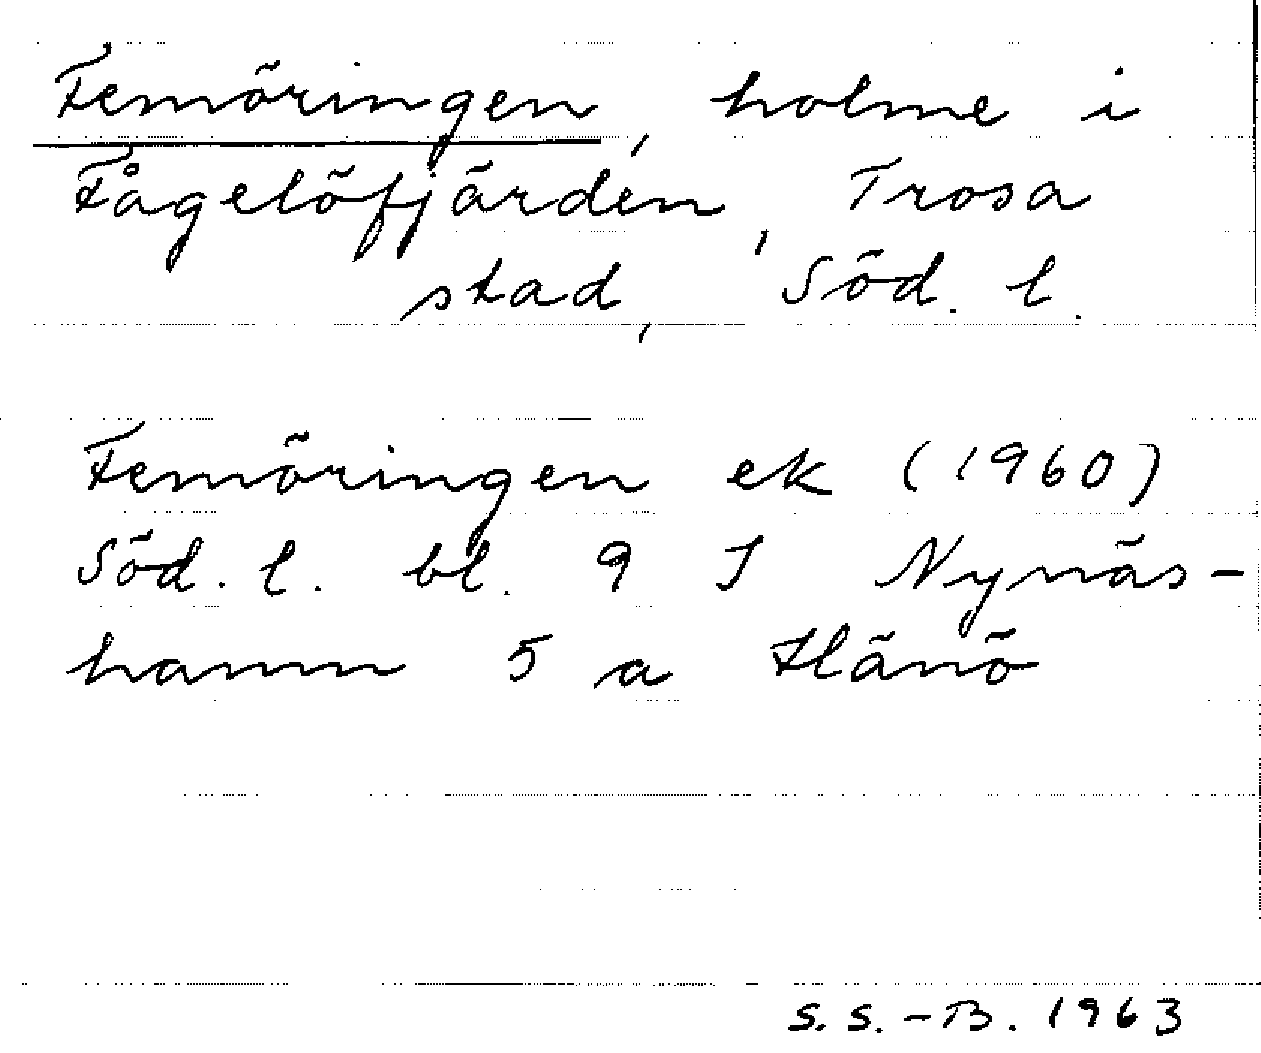 Femöringen, holme i
Fågelöfjärden, Trosa
stad, Söd. l.
Femöringen ek (1960)
Söd. l. bl. 9 I Nynäs-
hamn 5 a Hänö
S. S.-B. 1963